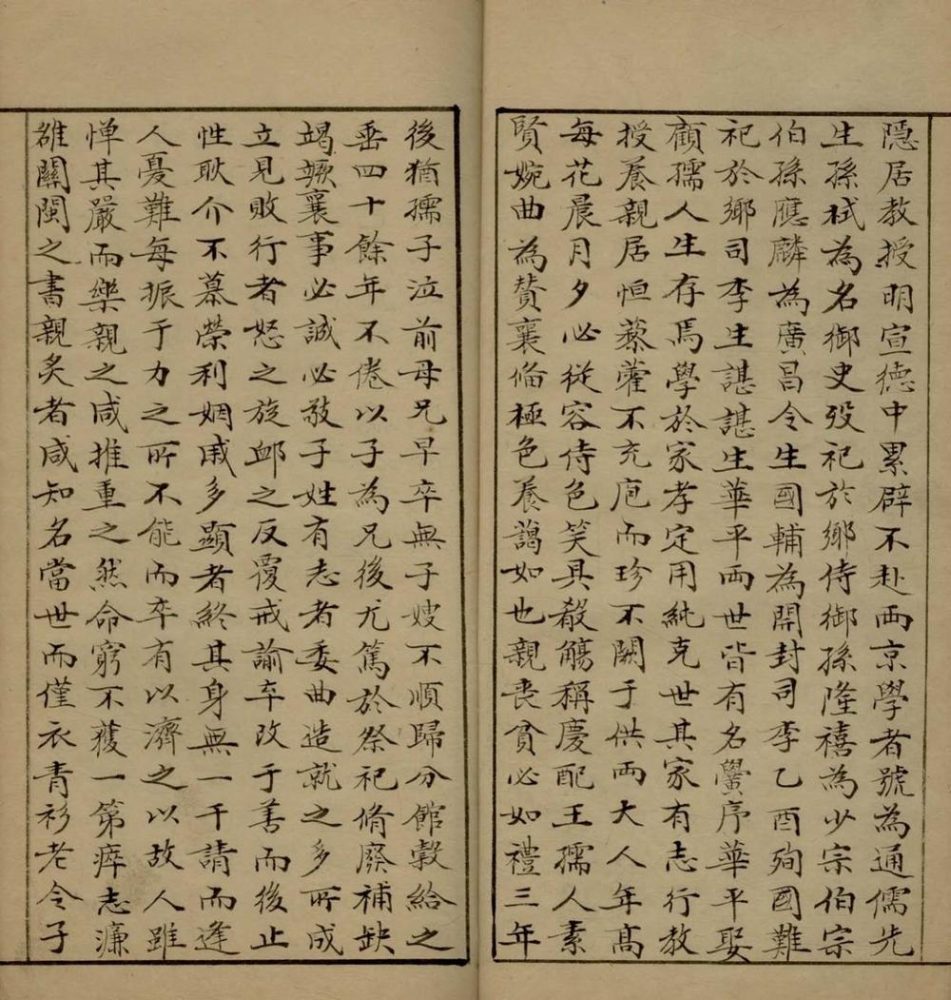 隱居教授明宣德中累辟不赴两京學者號為通儒先
生孫栻為名御史歿祀於鄉侍御孫隆禧為少宗伯宗
伯孫應麟為廣昌令生國輔為開封司李乙酉殉國難
祀於鄉司李生諶諶生華平両世皆有名黌序華平娶
顧孺人生存焉學於家孝定用純克世其家有志行教
授養親居恒藜藿不充庖而珍不闕于供两大人年髙
每花晨月夕必從容侍色笑具殽觴稱慶配王孺人素
賢婉曲為贊襄俻極色養藹如也親丧貧必如禮三年
後猶孺子泣前母兄早卒無子嫂不順歸分館穀給之
垂四十餘年不倦以子為兄後尤篤於祭祀脩廢補缺
竭蹶襄事必誠必敬子姓有志者委曲造就之多所成
立見敗行者怒之旋邺之反覆戒諭卒改于善而後止
性耿介不慕榮利姻戚多顯者終其身無一干請而逢
人憂難每振于力之所不能而卒有以濟之以故人雖
憚其嚴而樂親之咸推重之然命窮不獲一第瘁志濂
雒關閩之書親炙者咸知名當世而僅衣青衫老令子